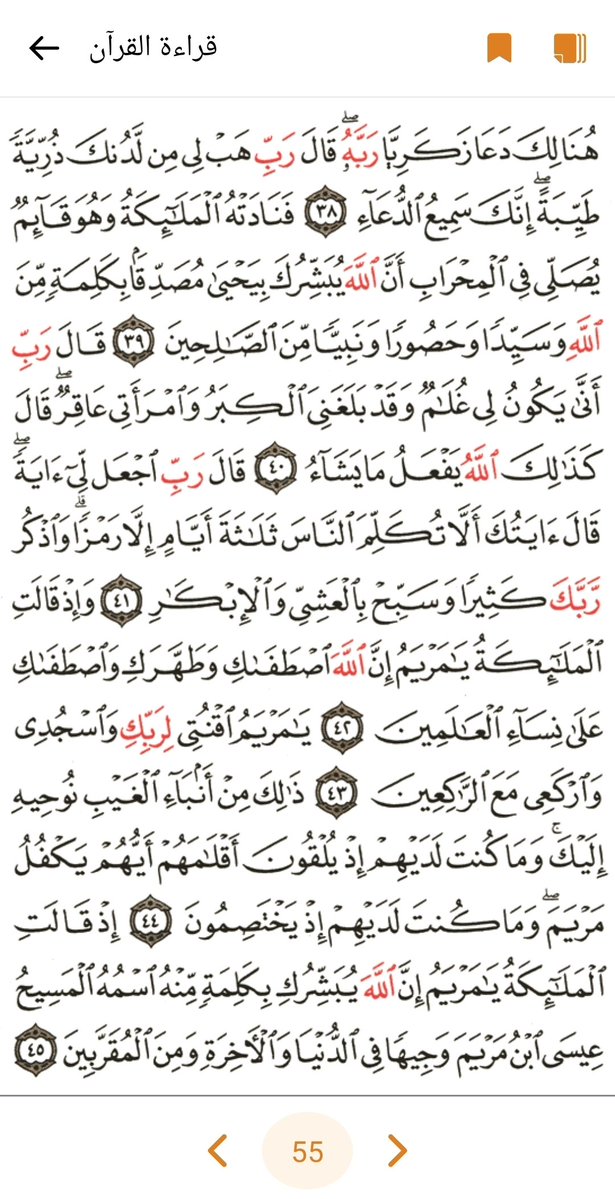 قراءة القرآن
هُنَالِكَ دَعَا زَكَرِيَّا رَبَّهُۥۖ قَالَ رَبِّ هَبْ لِى مِن لَّدُنكَ ذُرِّيَّةً
طَيِّبَةًۖ إِنَّكَ سَمِيعُ ٱلدُّعَآءِ ٣٨ فَنَادَتْهُ ٱلْمَلَٰٓئِكَةُ وَهُوَ قَآئِمٌ
يُصَلِّى فِى ٱلْمِحْرَابِ أَنَّ ٱللَّهَ يُبَشِّرُكَ بِيَحْيَىٰ مُصَدِّقًۢا بِكَلِمَةٍ مِّنَ
ٱللَّهِ وَسَيِّدًا وَحَصُورًا وَنَبِيًّا مِّنَ ٱلصَّٰلِحِينَ ٣٩ قَالَ رَبِّ
أَنَّىٰ يَكُونُ لِى غُلَٰمٌ وَقَدْ بَلَغَنِىَ ٱلْكِبَرُ وَٱمْرَأَتِى عَاقِرٌۖ قَالَ
كَذَٰلِكَ ٱللَّهُ يَفْعَلُ مَا يَشَآءُ ٤٠ قَالَ رَبِّ ٱجْعَل لِّىٓ ءَايَةًۖ
قَالَ ءَايَتُكَ أَلَّا تُكَلِّمَ ٱلنَّاسَ ثَلَٰثَةَ أَيَّامٍ إِلَّا رَمْزًاۗ وَٱذْكُر
رَّبَّكَ كَثِيرًا وَسَبِّحْ بِٱلْعَشِىِّ وَٱلْإِبْكَٰرِ ٤١ وَإِذْ قَالَتِ
ٱلْمَلَٰٓئِكَةُ يَٰمَرْيَمُ إِنَّ ٱللَّهَ ٱصْطَفَىٰكِ وَطَهَّرَكِ وَٱصْطَفَىٰكِ
عَلَىٰ نِسَآءِ ٱلْعَٰلَمِينَ ٤٢ يَٰمَرْيَمُ ٱقْنُتِى لِرَبِّكِ وَٱسْجُدِى
وَٱرْكَعِى مَعَ ٱلرَّٰكِعِينَ ٤٣ ذَٰلِكَ مِنْ أَنۢبَآءِ ٱلْغَيْبِ نُوحِيهِ
إِلَيْكَۚ وَمَا كُنتَ لَدَيْهِمْ إِذْ يُلْقُونَ أَقْلَٰمَهُمْ أَيُّهُمْ يَكْفُلُ
مَرْيَمَۖ وَمَا كُنتَ لَدَيْهِمْ إِذْ يَخْتَصِمُونَ ٤٤ إِذْ قَالَتِ
ٱلْمَلَٰٓئِكَةُ يَٰمَرْيَمُ إِنَّ ٱللَّهَ يُبَشِّرُكِ بِكَلِمَةٍ مِّنْهُ ٱسْمُهُ ٱلْمَسِيحُ
عِيسَى ٱبْنُ مَرْيَمَ وَجِيهًا فِى ٱلدُّنْيَا وَٱلْءَاخِرَةِ وَمِنَ ٱلْمُقَرَّبِينَ ٤٥
55